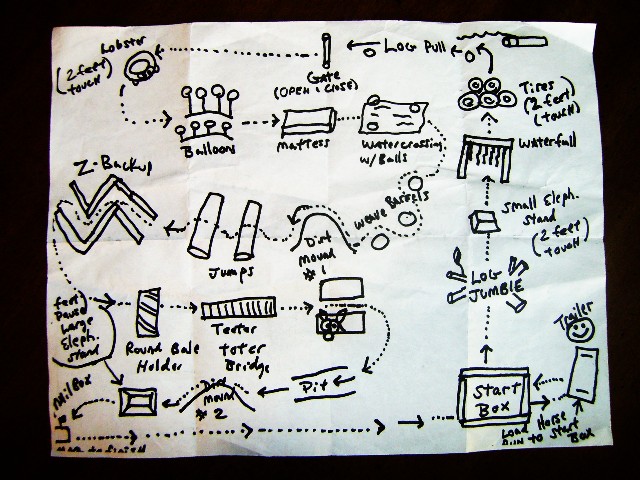 Lobster
(2 feet
touch)
Gate
(OPEN & CLOSE)
LOG Pull
Tires
(2 feet)
(touch)
Balloon
Mattess
Watercrossing
w/ Balls
Waterfall
Z-Backup
Small Eleph.
stand
(2 feet
touch)
Jumps
Dirt
mound
#1
weave Barrels
LOG
JUMBLE
feet
Pause
Large
Eleph.
stand
Round Bale
Holder
Teeter
toter
Bridge
Trailer
Dirt
mound
#2
Pit
Start
Box
Load Horse
Run to Start
Box